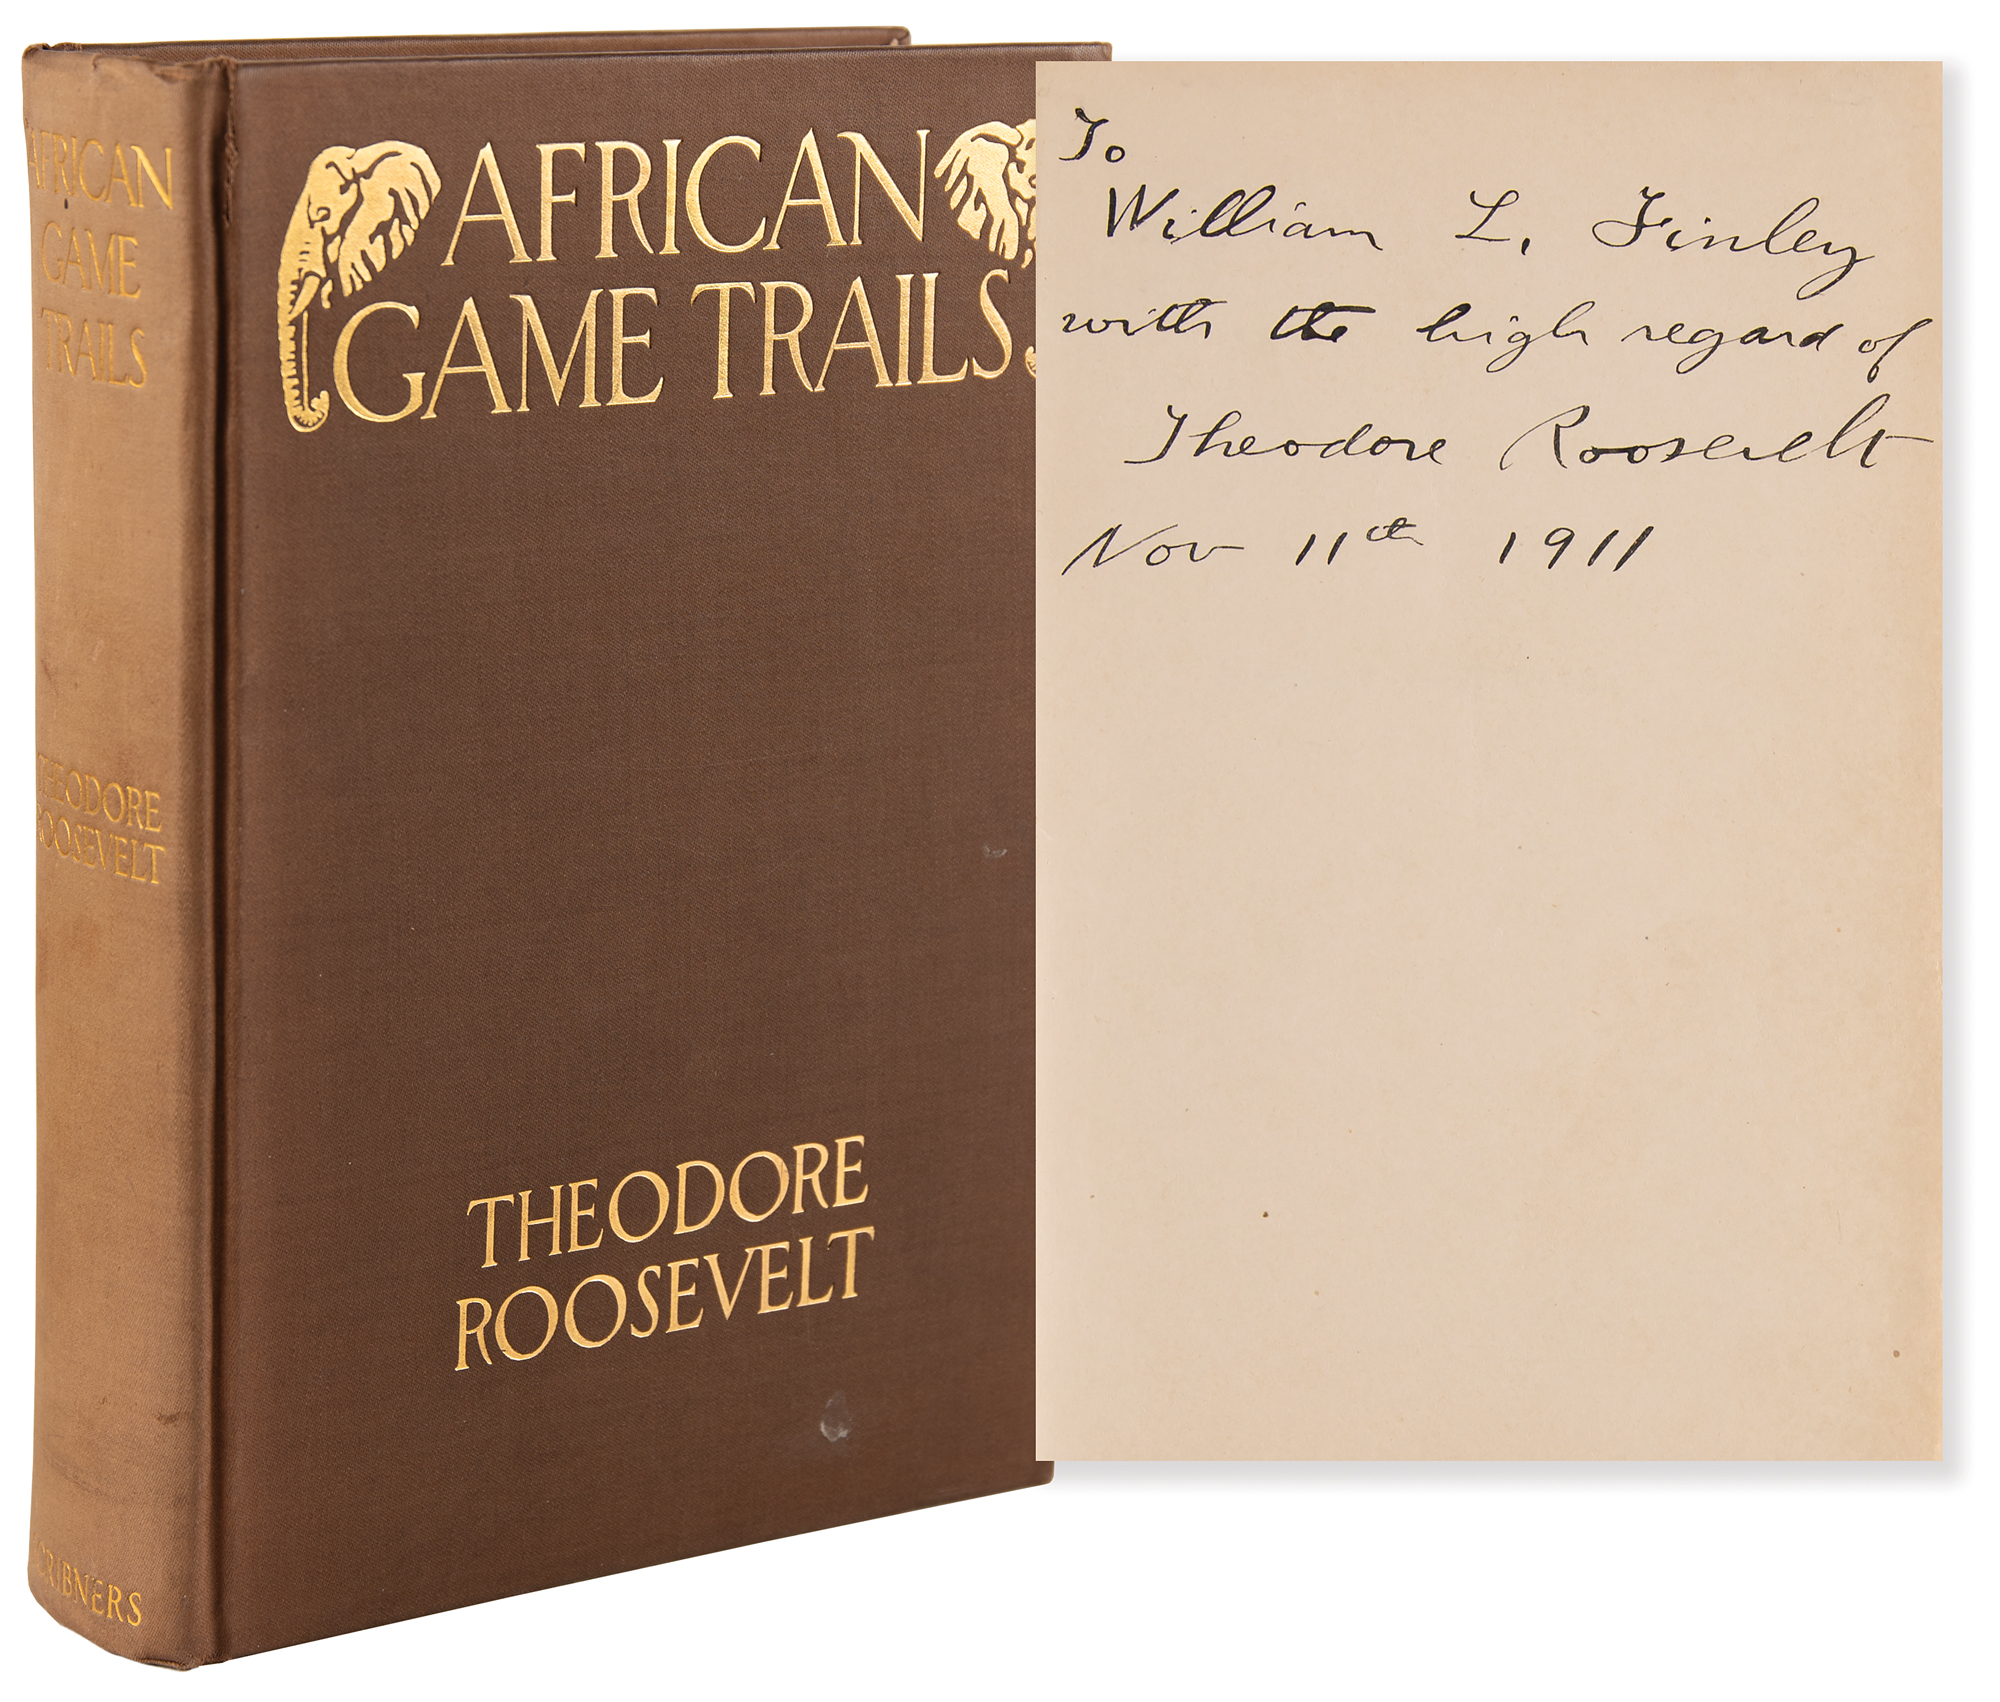 AFRICAN
GAME
TRAILS
THEODORE
ROOSEVELT
SCRIBNERS
AFRICAN
GAME TRAILS
THEODORE
ROOSEVELT
To
William L. Finley
with the high regard of
Theodore Roosevelt
Nov 11th 1911